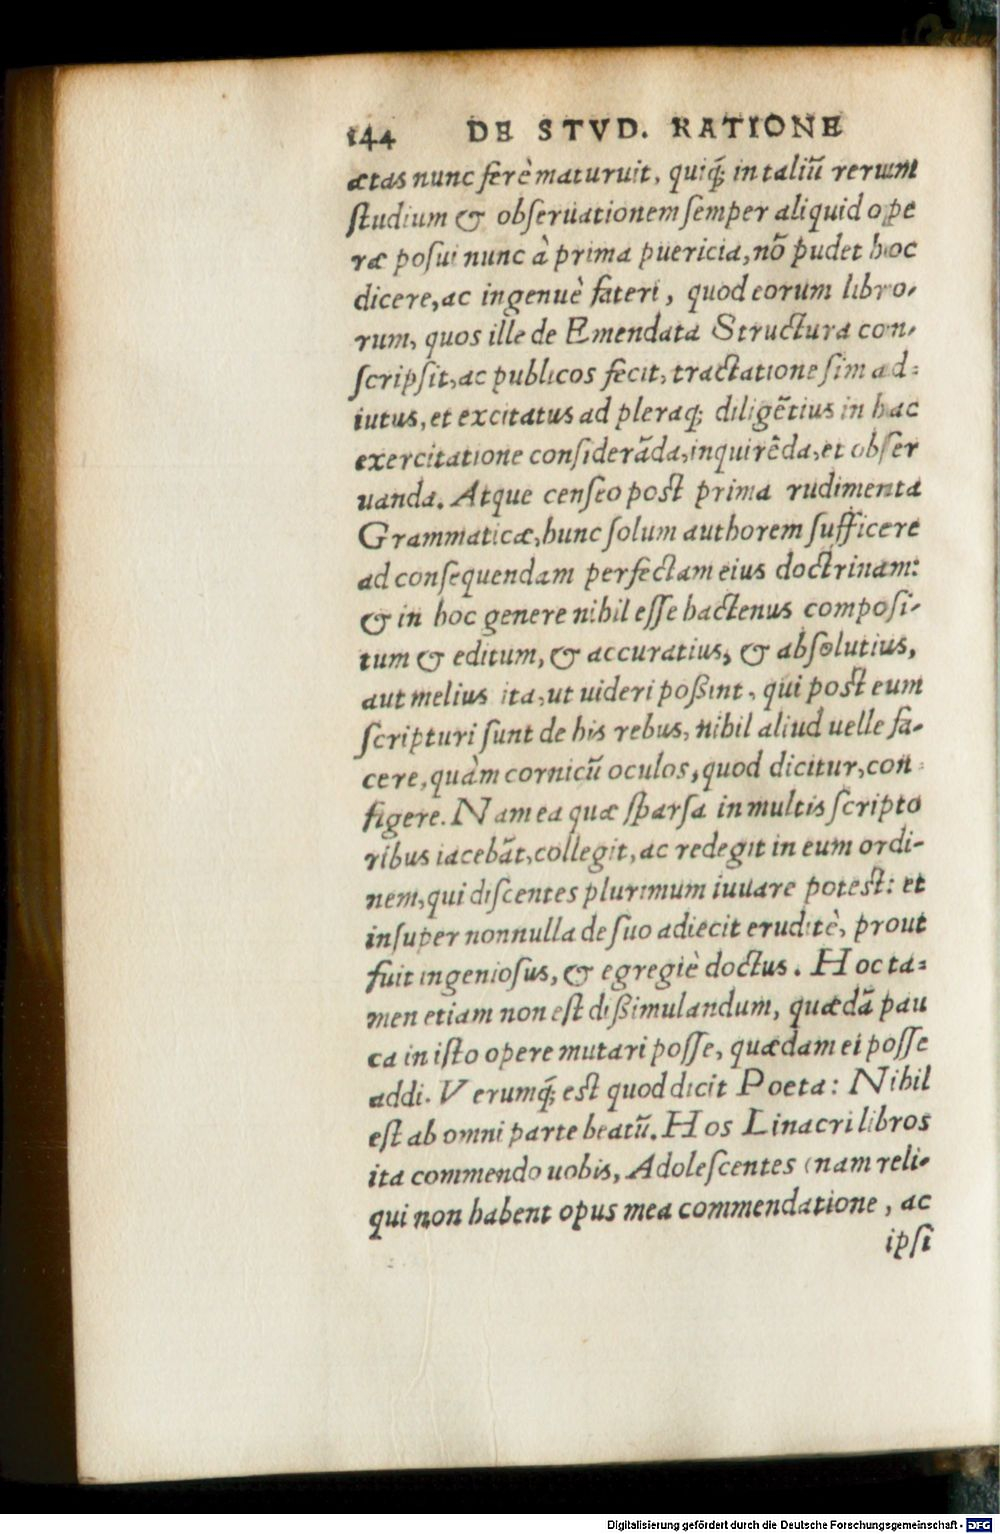 144 DE STVD. RATIONE
ætas nunc ferè maturuit, quiq́; in taliū rerum
ſtudium & obſeruationem ſemper aliquid ope
ræ poſui nunc à prima puericia, nō pudet hoc
dicere, ac ingenuè fateri, quod eorum libro-
rum, quos ille de Emendata Structura con-
ſcripſit, ac publicos fecit, tractatione ſim ad-
iutus, et excitatus ad pleraq; diligētius in hac
exercitatione conſiderāda, inquirēda, et obſer
uanda. Atque cenſeo poſt prima rudimenta
Grammaticæ, hunc ſolum authorem ſufficere
ad conſequendam perfectam eius doctrinam:
& in hoc genere nihil eſſe hactenus compoſi-
tum & editum, & accuratius, & abſolutius,
aut melius ita, ut uideri poßint, qui poſt eum
ſcripturi ſunt de his rebus, nihil aliud uelle fa-
cere, quàm cornicū oculos, quod dicitur, con-
figere. Nam ea quæ ſparſa in multis ſcripto
ribus iacebāt, collegit, ac redegit in eum ordi-
nem, qui diſcentes plurimum iuuare poteſt: et
inſuper nonnulla de ſuo adiecit eruditè, prout
fuit ingenioſus, & egregiè doctus. Hoc ta-
men etiam non eſt dißimulandum, quædā pau
ca in iſto opere mutari poſſe, quædam ei poſſe
addi. Verumq́; eſt quod dicit Poeta: Nihil
eſt ab omni parte beatū. Hos Linacri libros
ita commendo uobis, Adoleſcentes (nam reli-
qui non habent opus mea commendatione, ac
ipſi
Digitalisierung gefördert durch die Deutsche Forschungsgemeinschaft - DFG